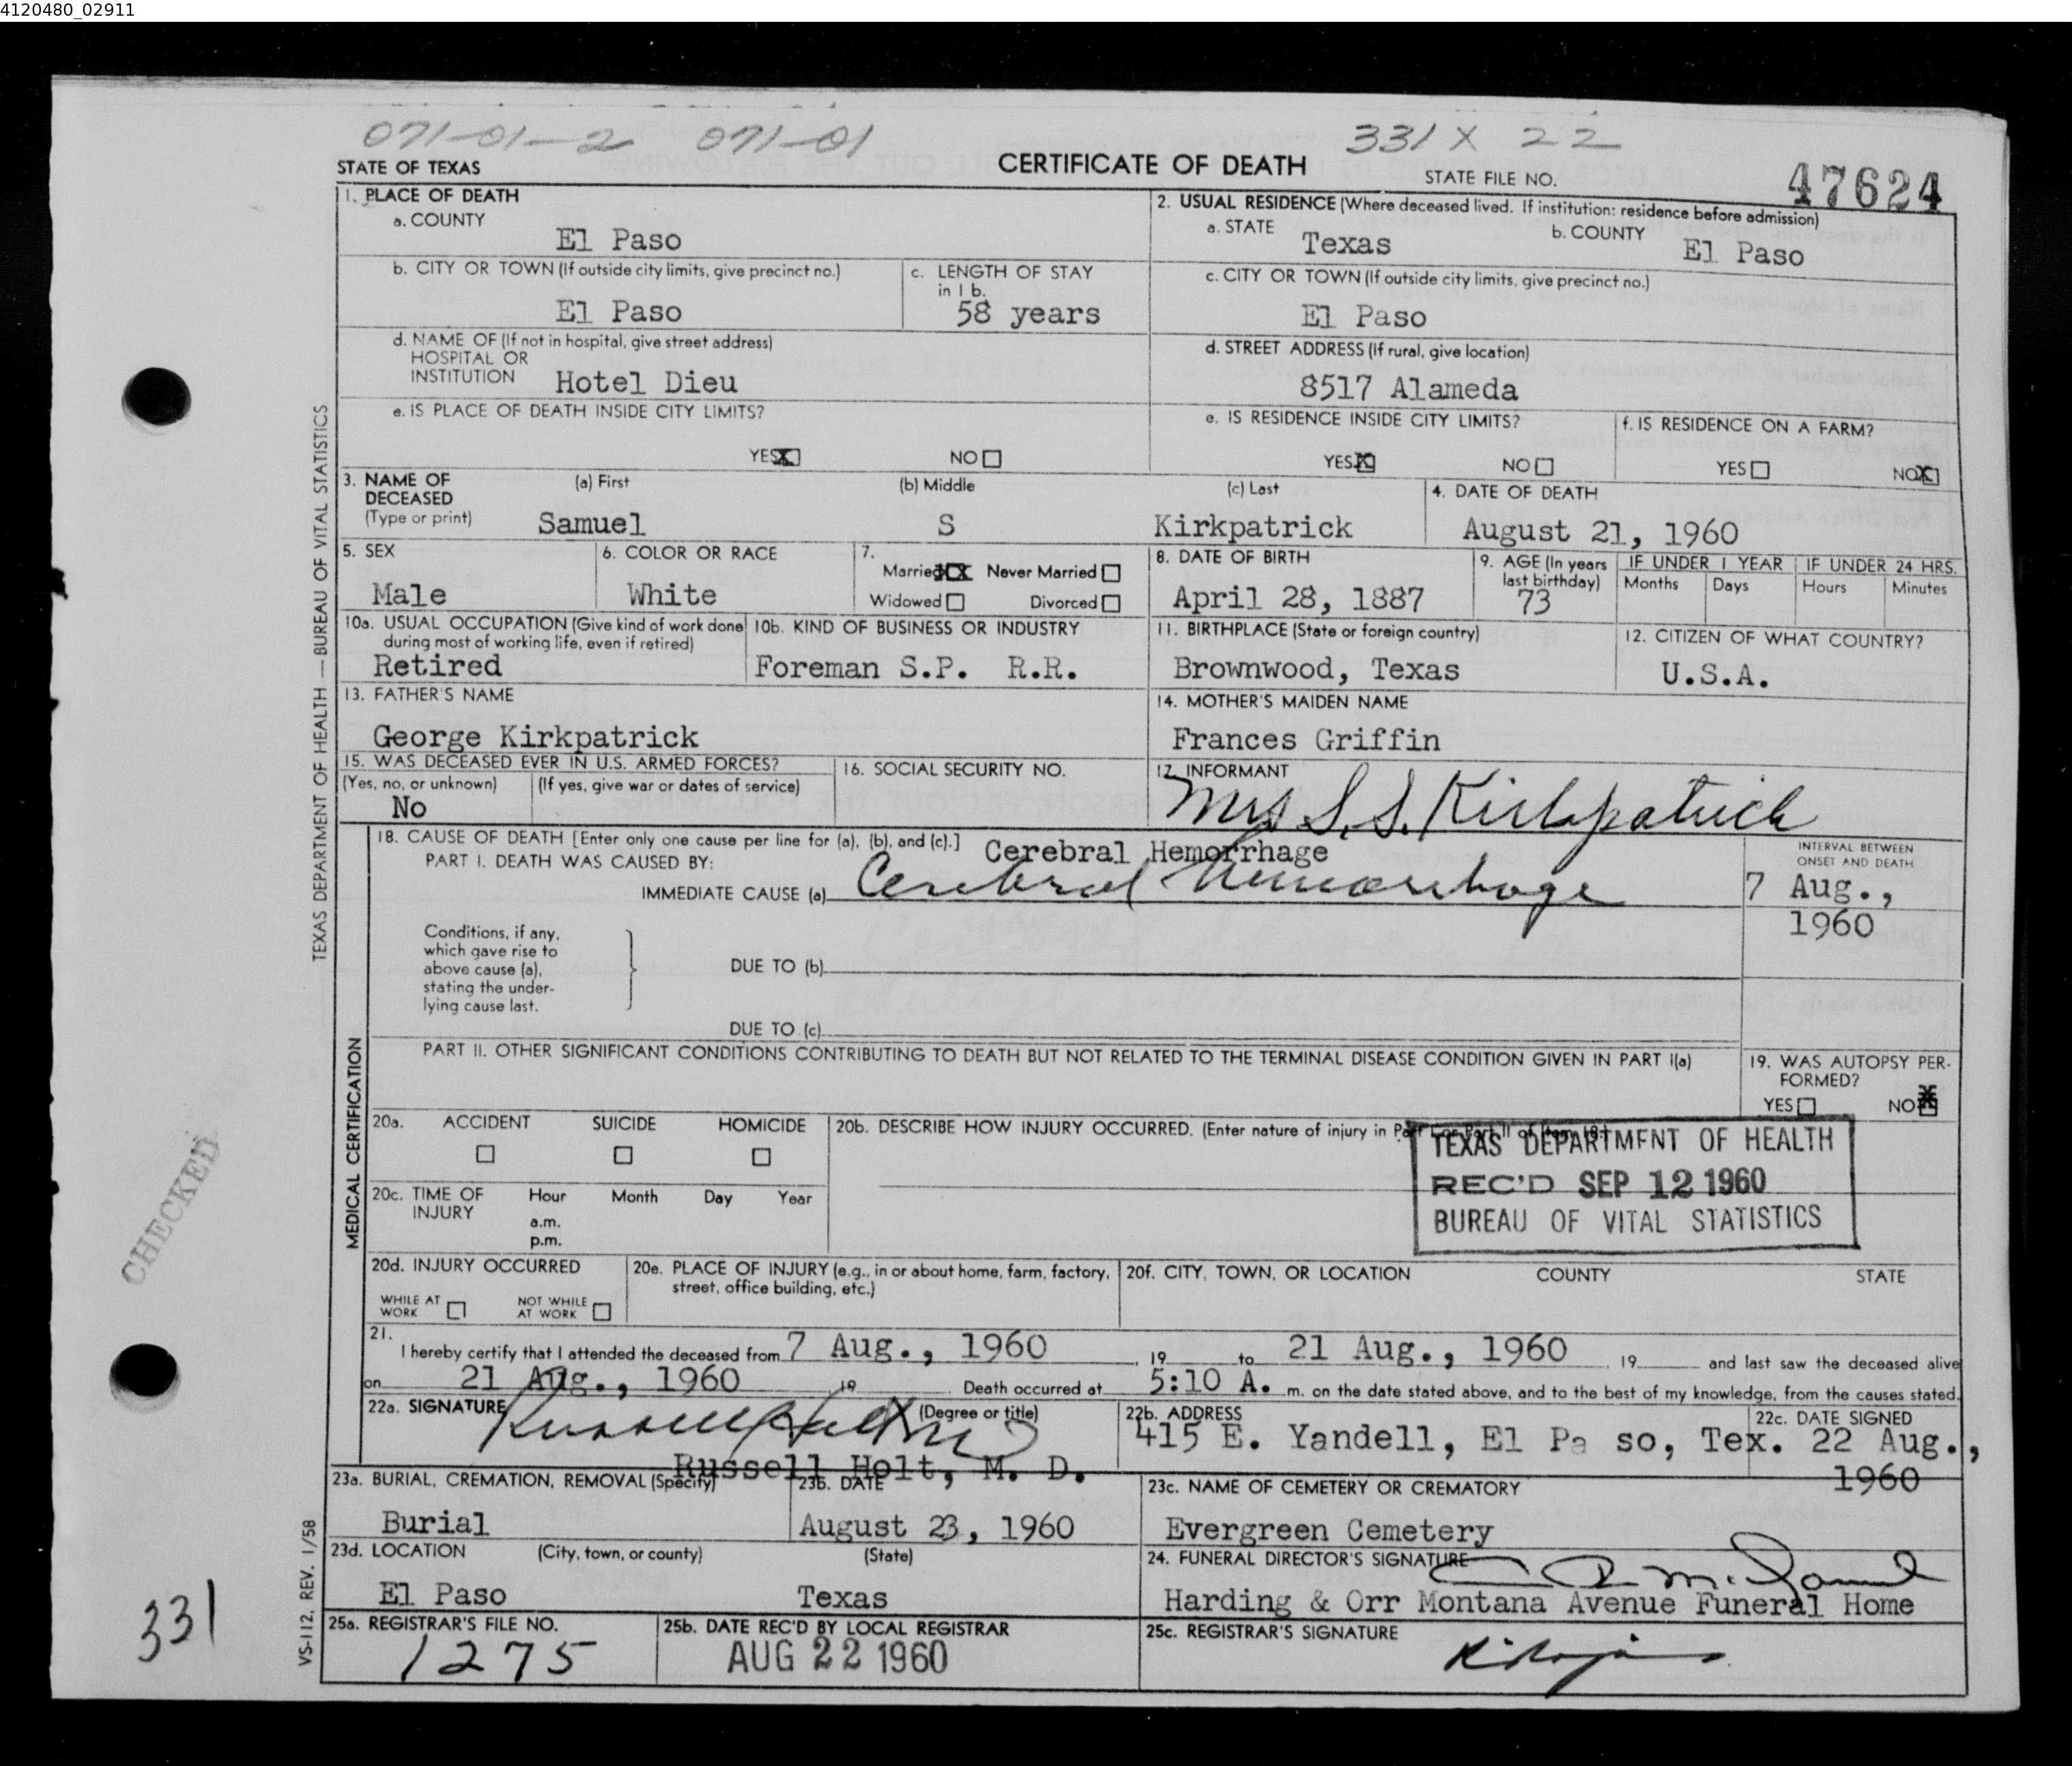 4120480_02911
071-01-2 071-01 331 X 22
STATE OF TEXAS CERTIFICATE OF DEATH STATE FILE NO. 47624
1. PLACE OF DEATH
a. COUNTY
El Paso
2. USUAL RESIDENCE (Where deceased lived. If institution: residence before admission)
a. STATE Texas b. COUNTY El Paso
b. CITY OR TOWN (If outside city limits, give precinct no.)
El Paso
c. LENGTH OF STAY
in 1 b.
58 years
c. CITY OR TOWN (If outside city limits, give precinct no.)
El Paso
d. NAME OF (If not in hospital, give street address)
HOSPITAL OR
INSTITUTION Hotel Dieu
d. STREET ADDRESS (If rural, give location)
8517 Alameda
e. IS PLACE OF DEATH INSIDE CITY LIMITS?
YES X NO
e. IS RESIDENCE INSIDE CITY LIMITS?
YES X NO
f. IS RESIDENCE ON A FARM?
YES NO X
3. NAME OF
DECEASED
(Type or print)
(a) First (b) Middle (c) Last
Samuel S Kirkpatrick
4. DATE OF DEATH
August 21, 1960
5. SEX
Male
6. COLOR OR RACE
White
7.
Married X Never Married
Widowed Divorced
8. DATE OF BIRTH
April 28, 1887
9. AGE (In years
last birthday)
73
IF UNDER 1 YEAR IF UNDER 24 HRS.
Months Days Hours Minutes
10a. USUAL OCCUPATION (Give kind of work done
during most of working life, even if retired)
Retired
10b. KIND OF BUSINESS OR INDUSTRY
Foreman S.P. R.R.
11. BIRTHPLACE (State or foreign country)
Brownwood, Texas
12. CITIZEN OF WHAT COUNTRY?
U.S.A.
13. FATHER'S NAME
George Kirkpatrick
14. MOTHER'S MAIDEN NAME
Frances Griffin
15. WAS DECEASED EVER IN U.S. ARMED FORCES?
(Yes, no, or unknown) (If yes, give war or dates of service)
No
16. SOCIAL SECURITY NO.
17. INFORMANT
Mrs S. S. Kirkpatrick
18. CAUSE OF DEATH [Enter only one cause per line for (a), (b), and (c).]
PART I. DEATH WAS CAUSED BY: Cerebral Hemorrhage
IMMEDIATE CAUSE (a) Cerebral Hemorrhage
INTERVAL BETWEEN
ONSET AND DEATH
7 Aug.,
1960
Conditions, if any,
which gave rise to
above cause (a),
stating the under-
lying cause last.
DUE TO (b)
DUE TO (c)
PART II. OTHER SIGNIFICANT CONDITIONS CONTRIBUTING TO DEATH BUT NOT RELATED TO THE TERMINAL DISEASE CONDITION GIVEN IN PART I(a)
19. WAS AUTOPSY PER-
FORMED?
YES NO X
20a. ACCIDENT SUICIDE HOMICIDE
20b. DESCRIBE HOW INJURY OCCURRED. (Enter nature of injury in Part I or Part II of Item 18)
TEXAS DEPARTMENT OF HEALTH
REC'D SEP 12 1960
BUREAU OF VITAL STATISTICS
20c. TIME OF
INJURY
Hour Month Day Year
a.m.
p.m.
20d. INJURY OCCURRED
WHILE AT
WORK
NOT WHILE
AT WORK
20e. PLACE OF INJURY (e.g., in or about home, farm, factory,
street, office building, etc.)
20f. CITY, TOWN, OR LOCATION COUNTY STATE
21.
I hereby certify that I attended the deceased from 7 Aug., 1960, 19 to 21 Aug., 1960, 19 and last saw the deceased alive
on 21 Aug., 1960 19 . Death occurred at 5:10 A. m. on the date stated above, and to the best of my knowledge, from the causes stated.
22a. SIGNATURE (Degree or title)
Russell Holt MD
Russell Holt, M. D.
22b. ADDRESS
415 E. Yandell, El Pa so, Tex.
22c. DATE SIGNED
22 Aug.,
1960
23a. BURIAL, CREMATION, REMOVAL (Specify)
Burial
23b. DATE
August 23, 1960
23c. NAME OF CEMETERY OR CREMATORY
Evergreen Cemetery
23d. LOCATION (City, town, or county) (State)
El Paso Texas
24. FUNERAL DIRECTOR'S SIGNATURE
Harding & Orr Montana Avenue Funeral Home
25a. REGISTRAR'S FILE NO.
1275
25b. DATE REC'D BY LOCAL REGISTRAR
AUG 22 1960
25c. REGISTRAR'S SIGNATURE
TEXAS DEPARTMENT OF HEALTH — BUREAU OF VITAL STATISTICS
MEDICAL CERTIFICATION
VS-112, REV. 1/58
CHECKED
331